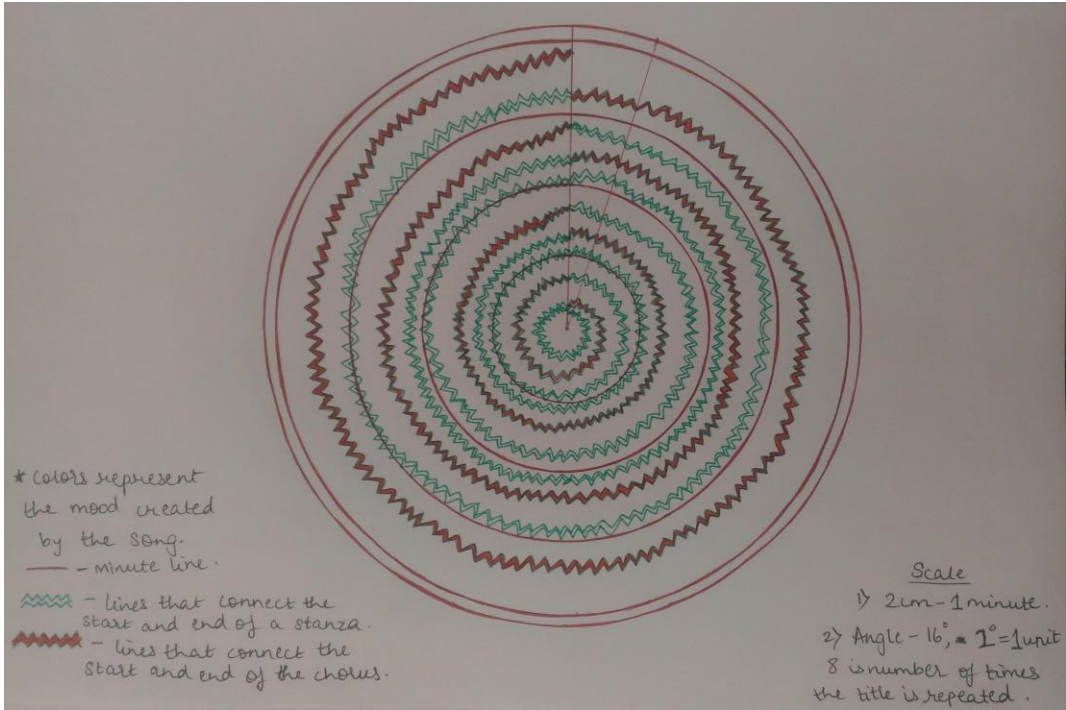 * Colors represent
the mood created
by the song.
- minute line.
- lines that connect the
start and end of a stanza.
- lines that connect the
start and end of the chorus.
Scale
1) 2cm - 1 minute.
2) Angle - 16°, 1° = 1 unit
8 is number of times
the title is repeated.